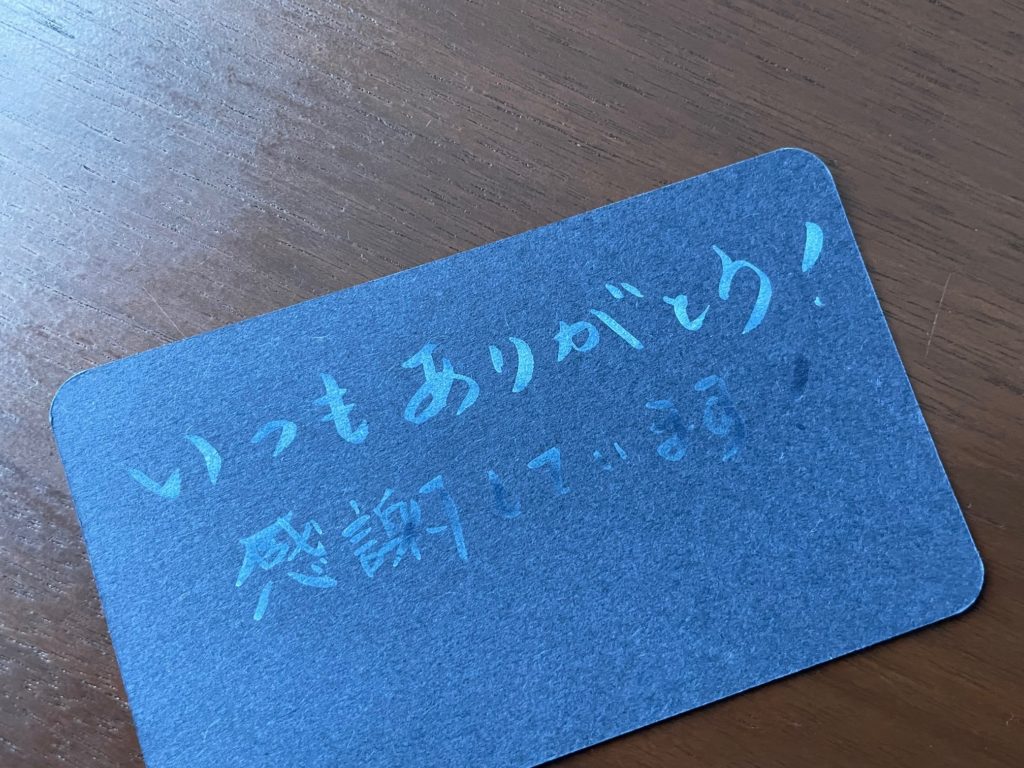 いつもありがとう!
感謝しています